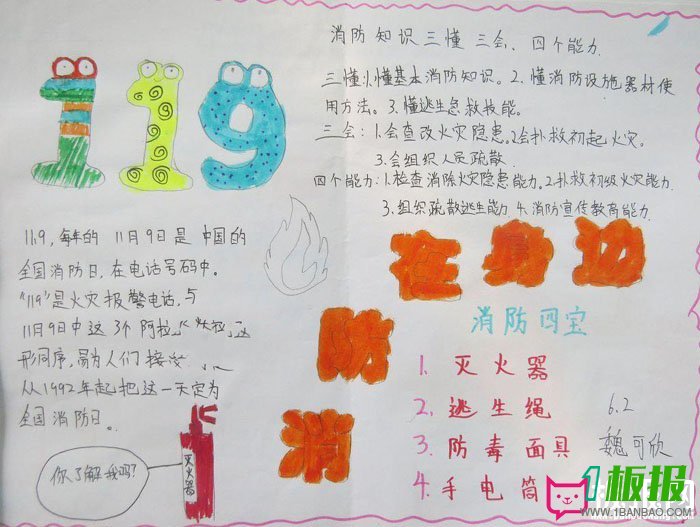 119
消防知识三懂 三会、四个能力
三懂:1.懂基本消防知识。2.懂消防设施器材使
用方法。3.懂逃生急救技能。
三会:1.会查改火灾隐患.2会扑救初起火灾.
3.会组织人员疏散
四个能力:1.检查消除火灾隐患能力.2.扑救初级火灾能力.
3.组织疏散逃生能力 4.消防宣传教育能力
11.9,每年的 11月9日是 中国的
全国消防日,在电话号码中。
"119"是火灾报警电话,与
11月9日中这 3个 阿拉
形同序,易为人们接
从1992年起把这一天定为
全国消防日。
你了解我吗?
灭火器
消防
在身边
消防四宝
1. 灭火器
2. 逃生绳
3. 防毒面具
4. 手电筒
6.2
魏可欣
1板报
WWW.1BANBAO.COM